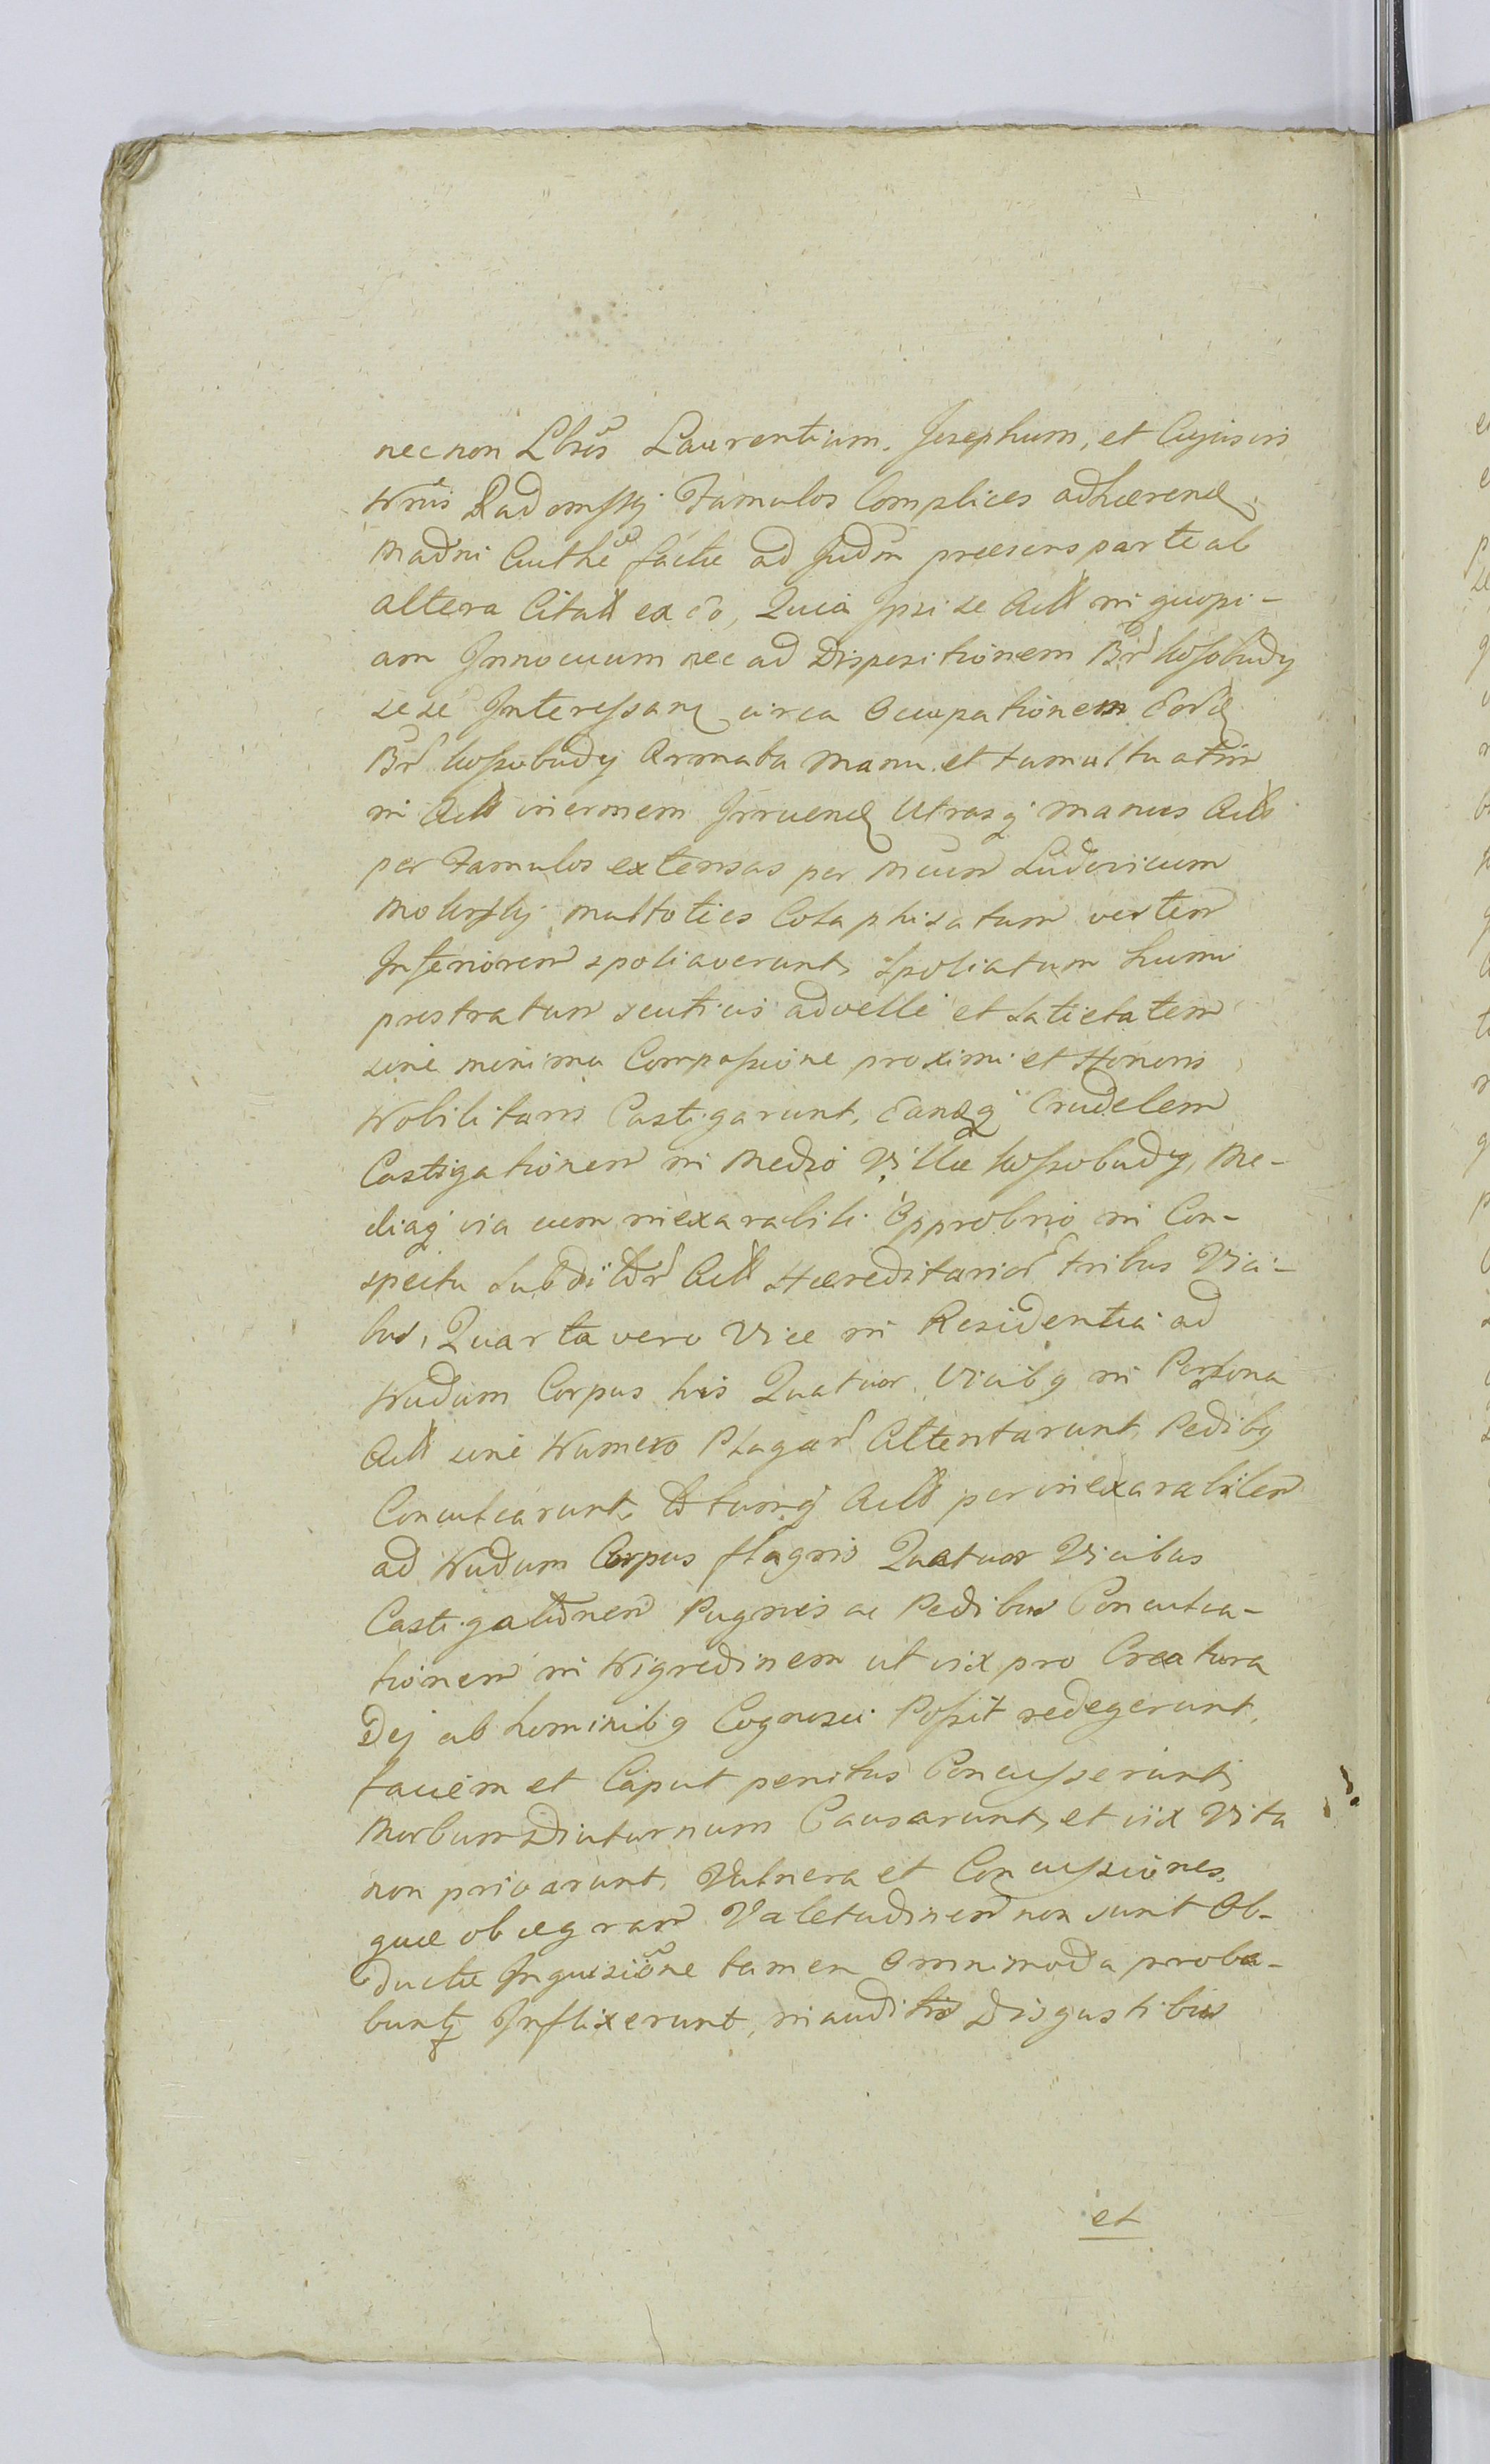 necnon Lbros Laurentium, Josephum, et Cujusvis
Nris Radomsky Famulos Complices adhaerend
Madni Authe factae ad Judm praesens parte ab
altera Citatt ex eo, Quia Ipsi se Actt in quopi-
am Innocuum nec ad Dispositionem Br Kossobudy
sese Interessan circa Occupationem eord
Br Kossobudy Armata manu et tumultuatim
in Actt inermem Irruend Utrasq manus Actt
per Famulos extensas per Mcum Ludovicum
multoties Colaphisatum vestem
Inferiorem spoliaverunt, Spoliatum humi
prostratum scuticis ad velle et Satietatem
sine minima Compassione proximi et Honoris
Nobilitaris Castigarunt, eandq Crudelem
Castigationem in Medio Villae Kossobudy, Me-
diaq via cum inexarabili Opprobrio in Con-
spectu Subditor Actt Haereditarior tribus Vici-
bus, Quarta vero Vice in Residentia ad
Nudum Corpus his Quatuor Vicibq in Persona
Actt sine Numero Plagar Attentarunt, Pedibq
Conculcarunt, Totumq Actt per inexarabilem
ad Nudum Corpus flagris Quatuor Vicibus
Castigationem Pugnis ac Pedibus Conculca-
tionem in Nigredinem ut vix pro Creatura
Dej ab hominibq Cognosci Possit redegerunt,
faciem et Caput penitus Concusserunt,
Morbum Diuturnum Causarunt, et vix Vita
non privarunt, Vulnera et Concussiones,
quae ob aegram Valetudinem non sunt Ob-
ductae Inquisitione tamen Omnimoda proba-
bunt Inflixerunt, inauditis Disgustibus
et